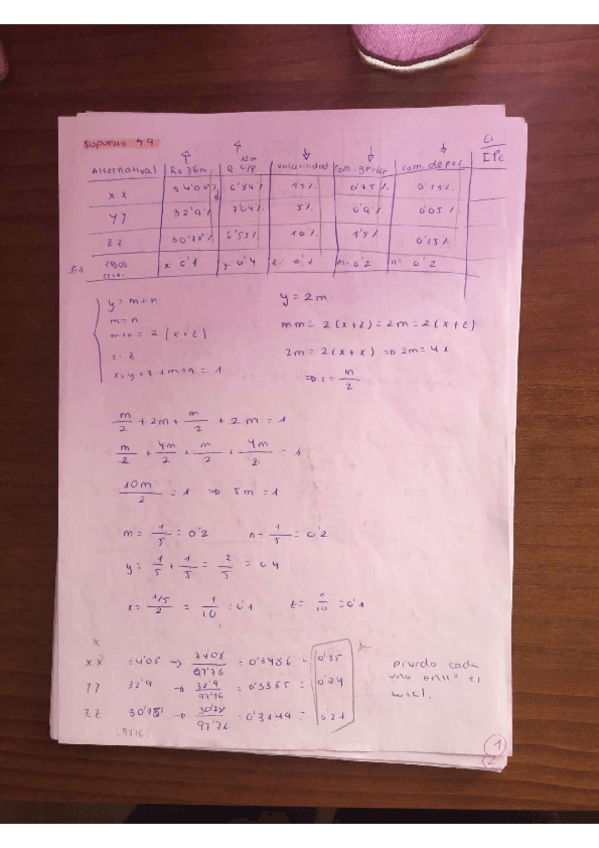 Supuesto 49
CI
IPC
Alternativas R a 36m R 12m c/p volatilidad com. gestión com. depos
XX 34'08% 6'84% 17% 0'75% 0'15%
YY 32'9% 7'04% 5% 0'9% 0'05%
ZZ 30'78% 6'55% 10% 1'5% 0'15%
peso x = 0'1 y = 0'4 z = 0'1 m = 0'2 n = 0'2
y = m+n
m = n
m+n = 2 (x+z)
x = z
x+y+z+m+n = 1
y = 2m
mm = 2(x+z) = 2m = 2(x+z)
2m = 2(x+x) => 2m = 4x
=> x = m/2
m/2 + 2m + m/2 + 2m = 1
m/2 + 4m/2 + m/2 + 4m/2 = 1
10m/2 = 1 => 5m = 1
m = 1/5 = 0'2 n = 1/5 = 0'2
y = 1/5 + 1/5 = 2/5 = 0'4
x = 1/5/2 = 1/10 = 0'1 z = 1/10 = 0'1
x
XX 34'08 -> 34'08/97'76 = 0'3486 = 0'35
YY 32'9 -> 32'9/97'76 = 0'3365 = 0'34
ZZ 30'78 -> 30'78/97'76 = 0'3149 = 0'31
97'76
divido cada
uno entre el
total.
1
2